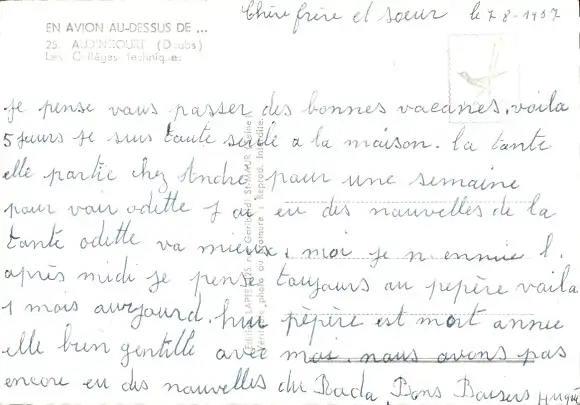 Chère frère et soeur le 7-8-1967
EN AVION AU-DESSUS DE ...
25. AUDINCOURT (Doubs)
Les Collèges Techniques
je pense vous passer des bonnes vacances. voila
5 jours je suis toute seule a la maison. la tante
elle partie chez André pour une semaine
pour voir odette j ai eu des nouvelles de la
tante odette va mieux, moi je n ennuie l.
après midi je pense toujours au pepère voila
1 mois aurjourd. hui pèpère est mort annie
elle bien gentille avec moi. nous avons pas
encore eu des nouvelles du Dada. Bons Baisers